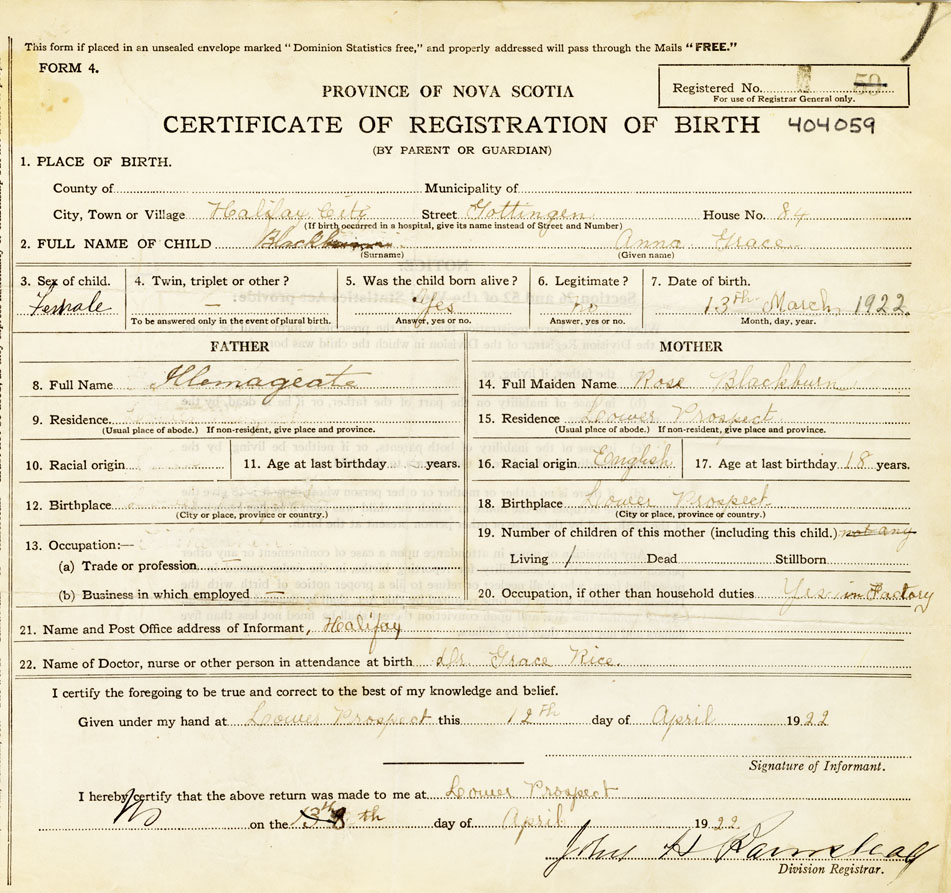 This form if placed in an unsealed envelope marked "Dominion Statistics free," and properly addressed will pass through the Mails "FREE."
FORM 4.
Registered No. 59
For use of Registrar General only.
PROVINCE OF NOVA SCOTIA
CERTIFICATE OF REGISTRATION OF BIRTH 404059
(BY PARENT OR GUARDIAN)
1. PLACE OF BIRTH.
County of Municipality of
City, Town or Village Halifax City Street Gottingen House No. 84
(If birth occurred in a hospital, give its name instead of Street and Number)
2. FULL NAME OF CHILD Blackburn Anna Grace
(Surname) (Given name)
3. Sex of child. 4. Twin, triplet or other? 5. Was the child born alive? 6. Legitimate? 7. Date of birth.
Female — Yes no 13th March 1922.
To be answered only in the event of plural birth. Answer, yes or no. Answer, yes or no. Month, day, year.
FATHER MOTHER
8. Full Name Illemageate 14. Full Maiden Name Rose Blackburn
9. Residence 15. Residence Lower Prospect
(Usual place of abode.) If non-resident, give place and province. (Usual place of abode.) If non-resident, give place and province.
10. Racial origin 11. Age at last birthday years. 16. Racial origin English 17. Age at last birthday 18 years.
12. Birthplace 18. Birthplace Lower Prospect
(City or place, province or country.) (City or place, province or country.)
19. Number of children of this mother (including this child.) not any
13. Occupation:—
(a) Trade or profession — Living 1 Dead Stillborn
(b) Business in which employed — 20. Occupation, if other than household duties Yes in Factory
21. Name and Post Office address of Informant, Halifax
22. Name of Doctor, nurse or other person in attendance at birth Dr. Grace Rice.
I certify the foregoing to be true and correct to the best of my knowledge and belief.
Given under my hand at Lower Prospect this 12th day of April 1922
Signature of Informant.
I hereby certify that the above return was made to me at Lower Prospect
on the 13th 8th day of April 1922
John H
Division Registrar.